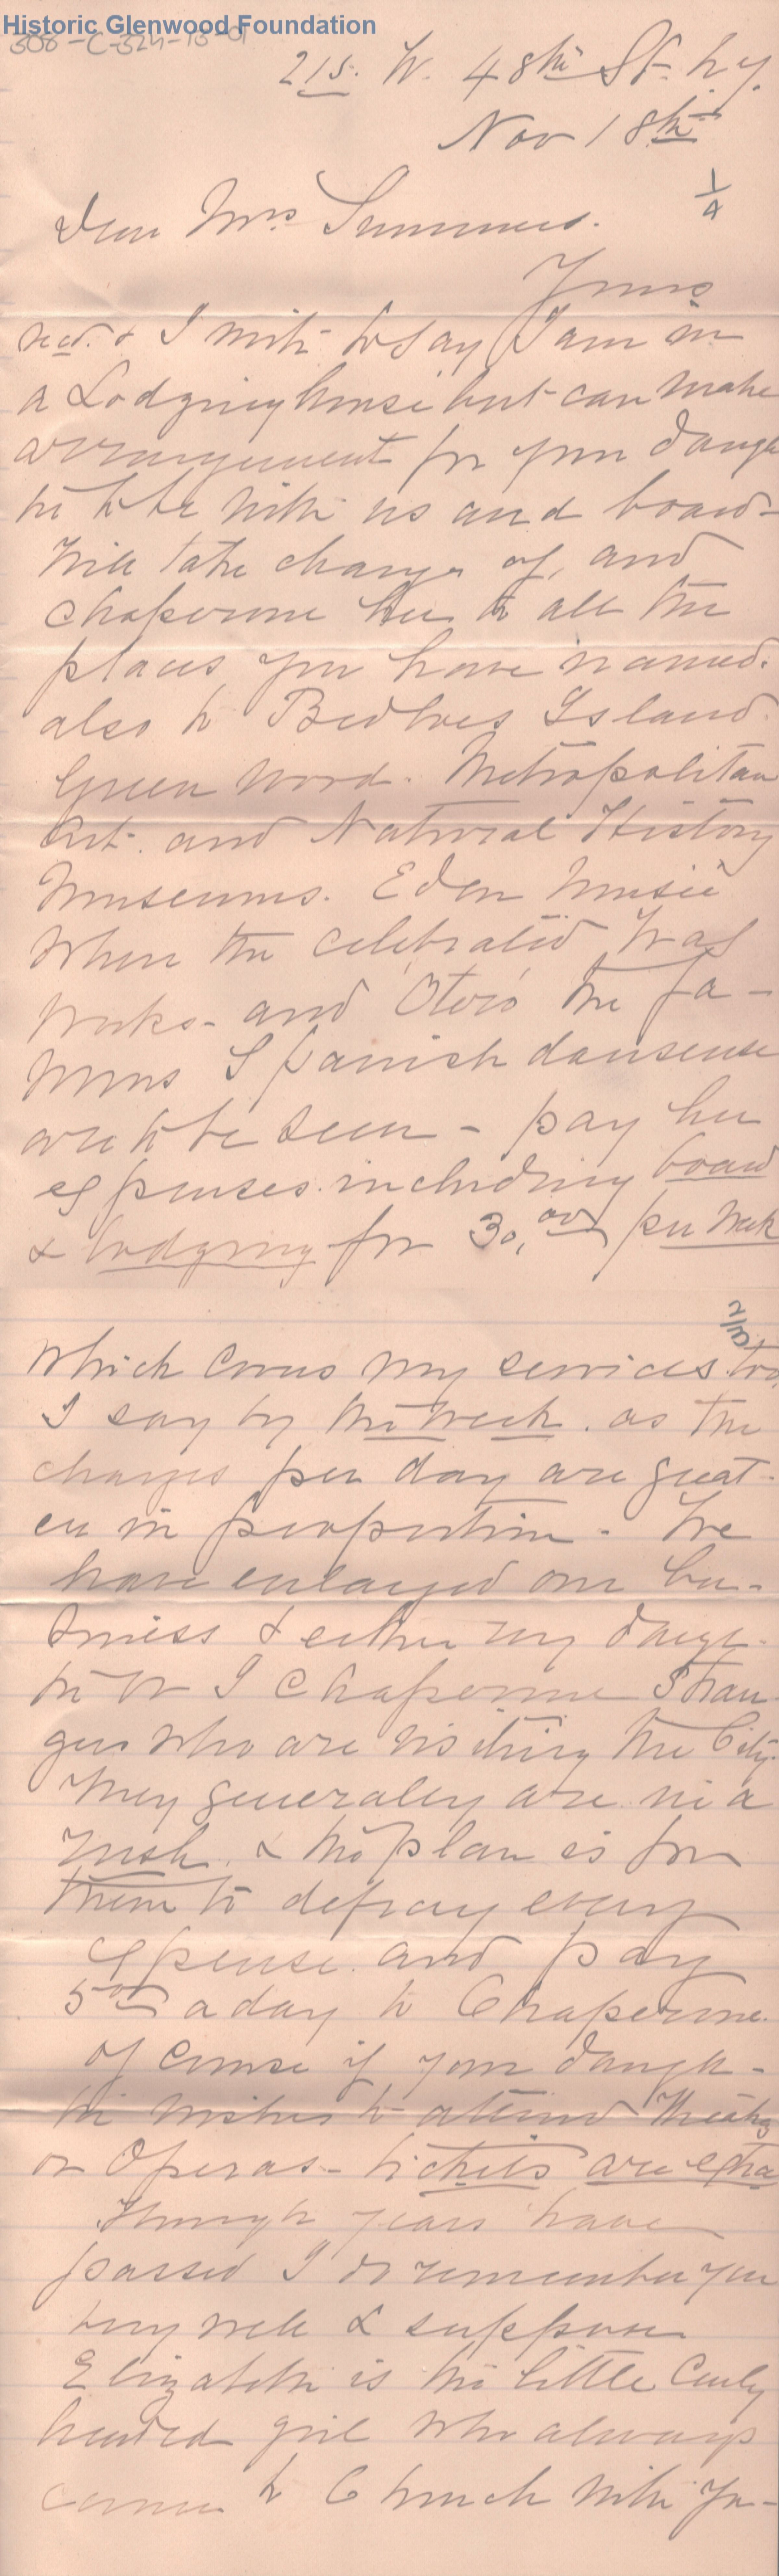 Historic Glenwood Foundation
215. W. 48th St. N.Y.
Nov 18th
1/4
Dear Mrs Summers.
Yours
recd. & I write to say I am in
a Lodging house but can make
arrangement for your daugh
ter to be with us and board-
Will take charge of, and
chaperone her to all the
places you have named.
also to Bedloes Island.
Green Wood. Metropolitan
Art. and Natural History
Museums. Eden Museé
Where the celebrated Wax
Works- and 'Otero' the fa-
mous Spanish danseuse
are to be seen - pay her
expenses including board
& lodging for 30,00 per week
2/4
Which covers my services too
I say by the week. as the
charges per day are great-
er in proportion - We
have enlarged our bu-
siness & either my daugh-
ter or I chaperone stran-
gers who are visiting the City.
They generally are in a
rush & the plan is for
them to defray every
expense. and pay
5.00 a day to Chaperone.
of course if your daugh-
ter wishes to attend Theatres
or Operas- tickets are extra
Though years have
passed I do remember you
very well & suppose
Elizabeth is the little Curly
headed girl who always
came to Church with you-